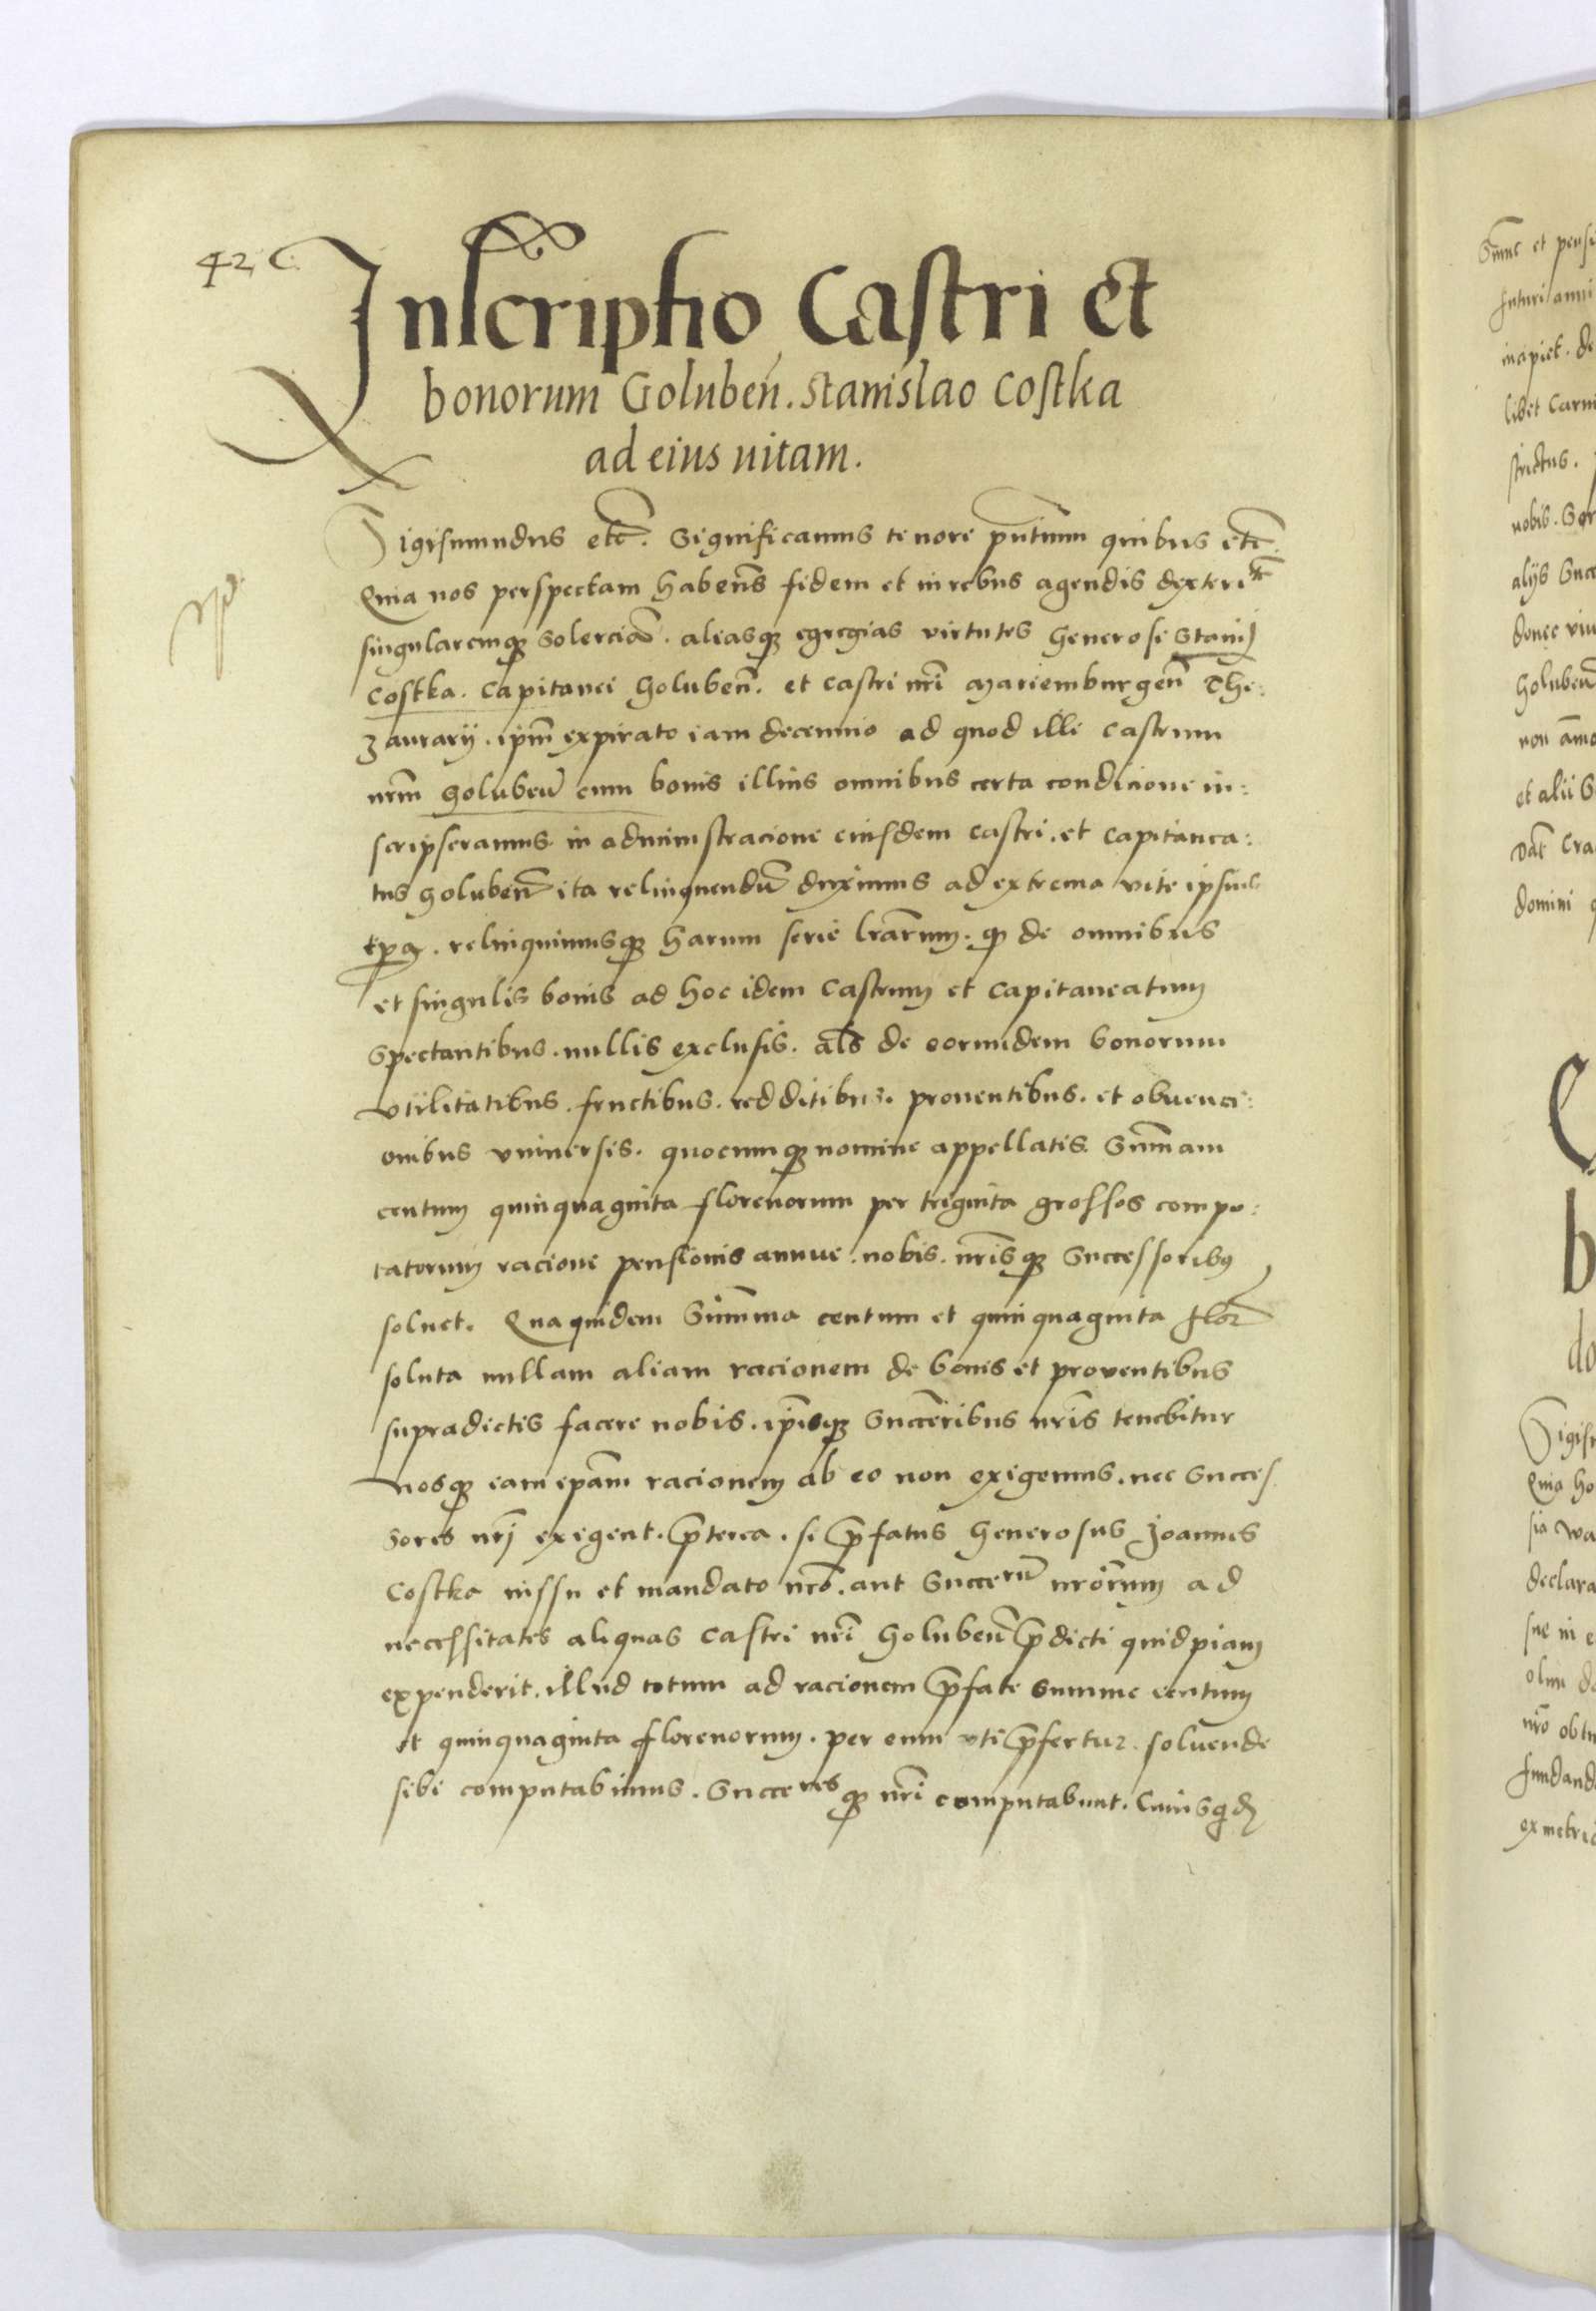 42, C.
Inscriptio Castri et
bonorum Goluben̄. Stanislao Costka
ad eius uitam.
Sigismundus etc̄. Significamus tenore pn̄tium quibus etc̄.
Quia nos perspectam haben̄s fidem et in rebus agendis dexteritē
singularemq̨ solerciā. aliasq̨ egregias virtutes Generosi Stanij
Costka. Capitanei Goluben̄. et castri nr̄i Mariemburgen̄ The:
zaurarij. ipm̄ expirato iam decennio ad quod illi castrum
nrm̄ Goluben̄ cum bonis illius omnibus certa condicione in:
scripseramus. in administracione eiusdem castri. et capitanea:
tus Goluben̄ ita relinquendū duximus ad extrema vite ipsius
tp̄a. relinquimusq̨ harum serie lrārum. q̨ de omnibus
et singulis bonis ad hoc idem castrum et capitaneatum
spectantibus. nullis exclusis. als̄ de eorumdem bonorum
vtilitatibus. fructibus. redditibus. prouentibus. et obuenci:
onibus vniuersis. quocumq̨ nomine appellatis. Sum̄am
centum quinquaginta florenorum per triginta grossos compu:
tatorum racione pensionis annue. nobis. nr̄isq̨ Successoribus
soluet. Quaquidem Summa centum et quinquaginta flor̄
soluta nullam aliam racionem de bonis et prouentibus
supradictis facere nobis. ip̄isq̨ Succēribus nr̄is tenebitur
nosq̨ eam ip̄am racionem ab eo non exigemus. nec Succes
sores nr̄j exigent. p̄terea. si p̄fatus Generosus Joannes
Costka iussu et mandato nr̄o. aut Succerū nrōrum ad
necessitates aliquas castri nr̄i Goluben̄ p̄dicti quidpiam
expenderit. illud totum ad racionem p̄fate summe centum
et quinquaginta florenorum. per eum vti p̄fertur. soluende
sibi computabimus. Succeresq̨ nr̄i computabunt. Cuius qd̄